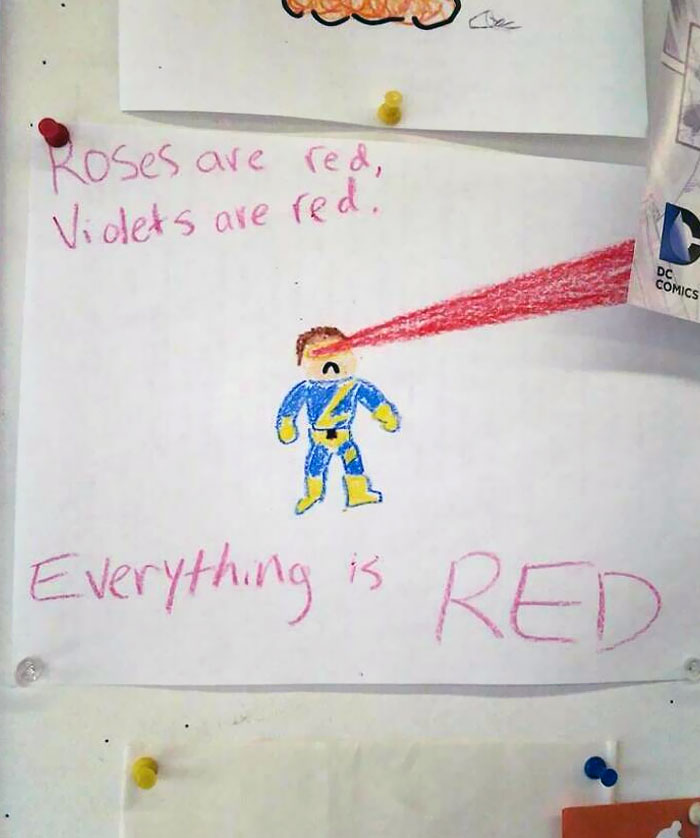 Roses are red,
Violets are red.
DC
COMICS
Everything is RED